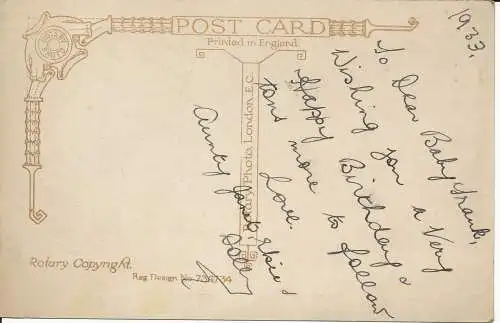 1933.
POST CARD
Printed in England.
Rotary Photo, London, E.C.
To Dear Baby Frank,
Wishing you a Very
Happy Birthday &
tons more to follow
Love.
Aunty
Rotary Copyright.
Reg Design No